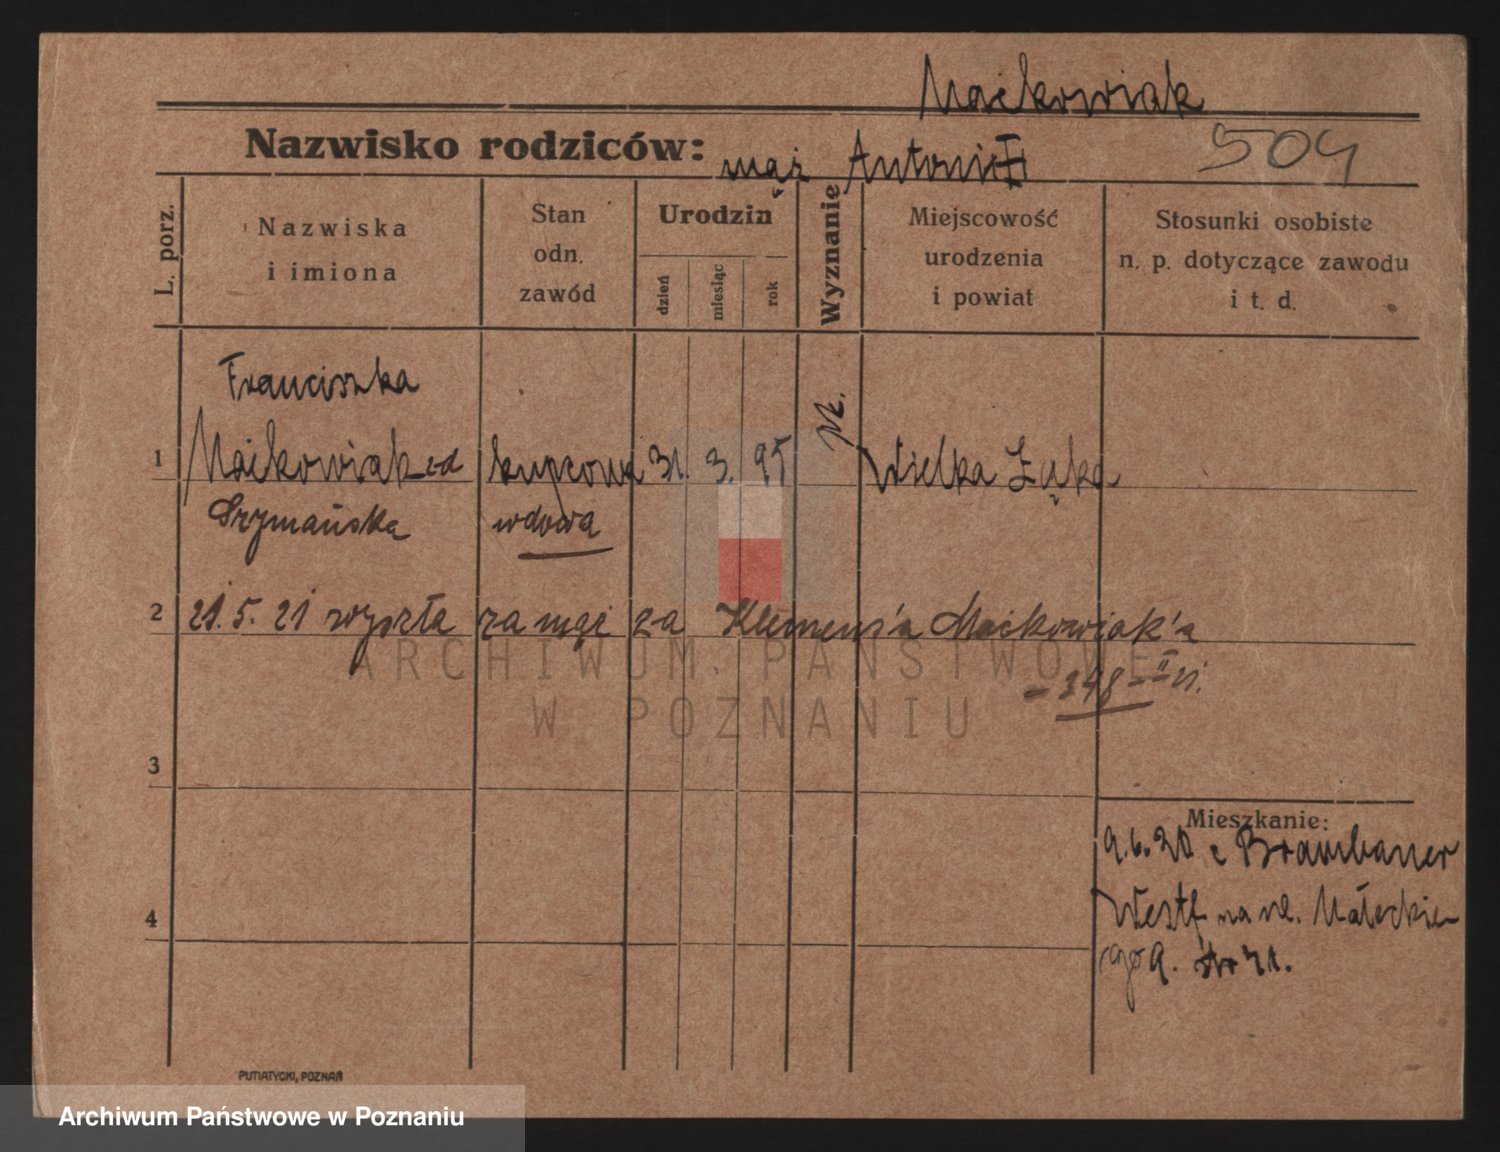 Maćkowiak
Nazwisko rodziców: mąż Antoni
504
L. porz.
Nazwiska
i imiona
Stan
odn.
zawód
Urodzin
dzień
miesiąc
rok
Wyznanie
Miejscowość
urodzenia
i powiat
Stosunki osobiste
n. p. dotyczące zawodu
i t. d.
Franciszka
1 Maćkowiak zd kupcowa 31. 3. 95 Wielka Łąka
Szymańska wdowa
2 21. 5. 21 wyszła za mąż za Klemens'a Maćkowiak'a
3
Mieszkanie:
9.6.20 z Brambauer
Westf na ul. Małeckie
4
go 9.
PUTIATYCKI, POZNAŃ
ARCHIWUM PAŃSTWOWE
W POZNANIU
Archiwum Państwowe w Poznaniu